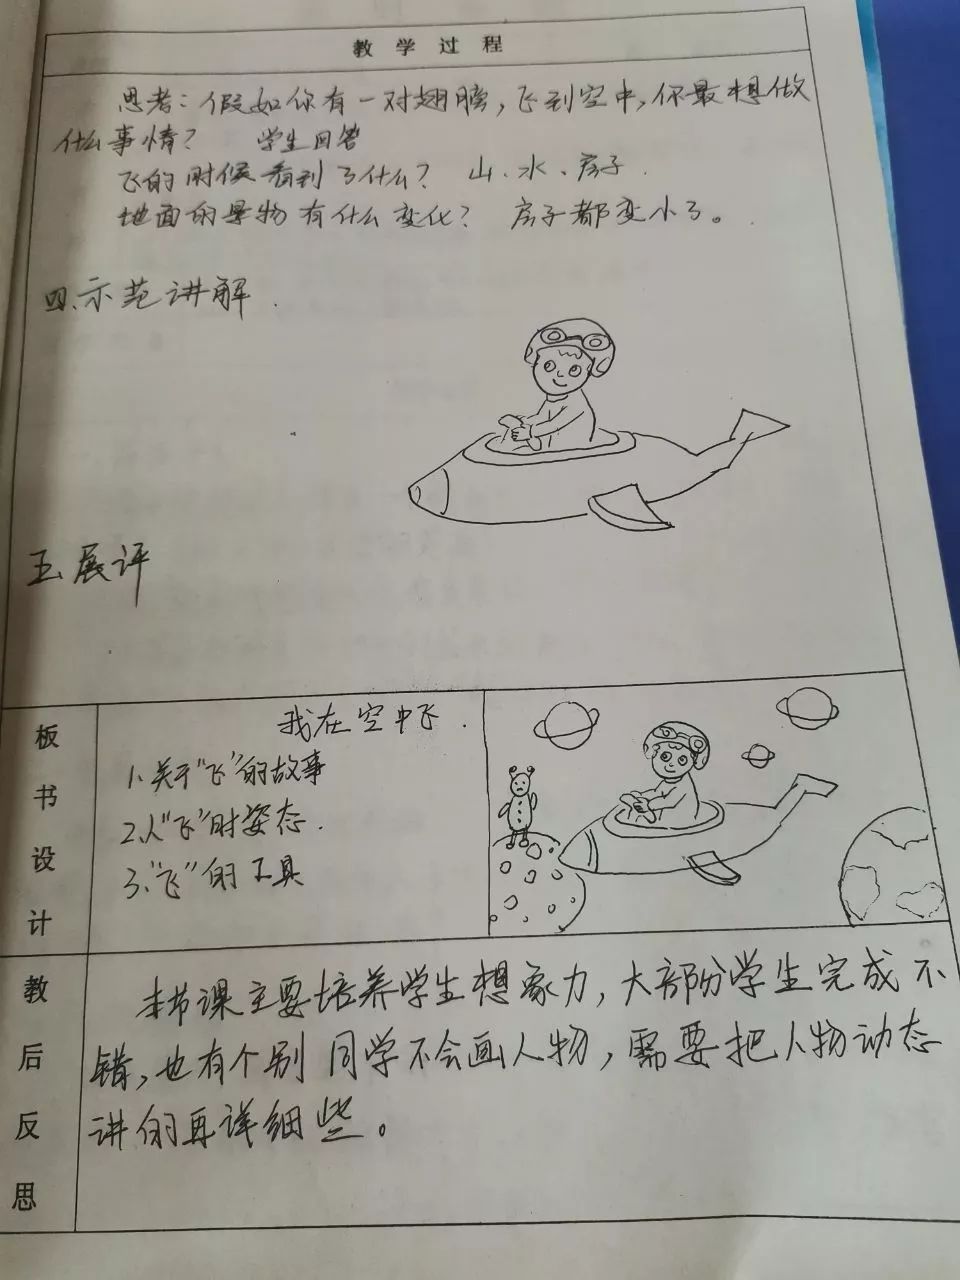 教学过程
思考:假如你有一对翅膀,飞到空中,你最想做
什么事情? 学生回答
飞的时候看到了什么? 山、水、房子.
地面的景物有什么变化? 房子都变小了。
四.示范讲解.
五.展评
板书设计
我在空中飞.
1.关于“飞”的故事
2.人“飞”时姿态.
3.“飞”的工具
教后反思
本节课主要培养学生想象力,大部分学生完成不
错,也有个别同学不会画人物,需要把人物动态
讲的再详细些。